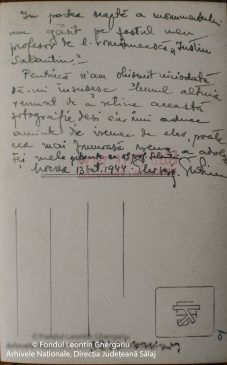 In partea dreaptă a monumentului
am găsit pe fostul meu
profesor de l. românească, "Iustin
Salantiu,"
Pentrucă n'am obișnuit niciodată
să-mi însușesc bunul altuia
renunț de a reține această
fotografie deși ea îmi aduce
aminte de vremea de elev, poate
cea mai frumoasă vreme
a adoles
ței mele
13 oct. 1944
© Fondul Leontin Ghergariu
© Fondul Leontin Ghergariu
Arhivele Naționale, Direcția Județeană Sălaj